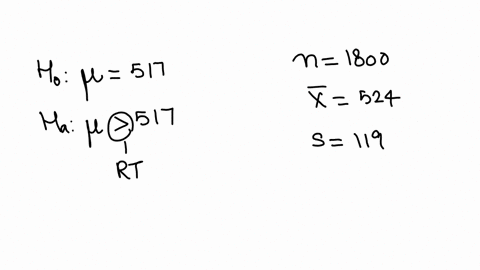 H₀: μ = 517
Hₐ: μ > 517
RT
n = 1800
x̄ = 524
s = 119